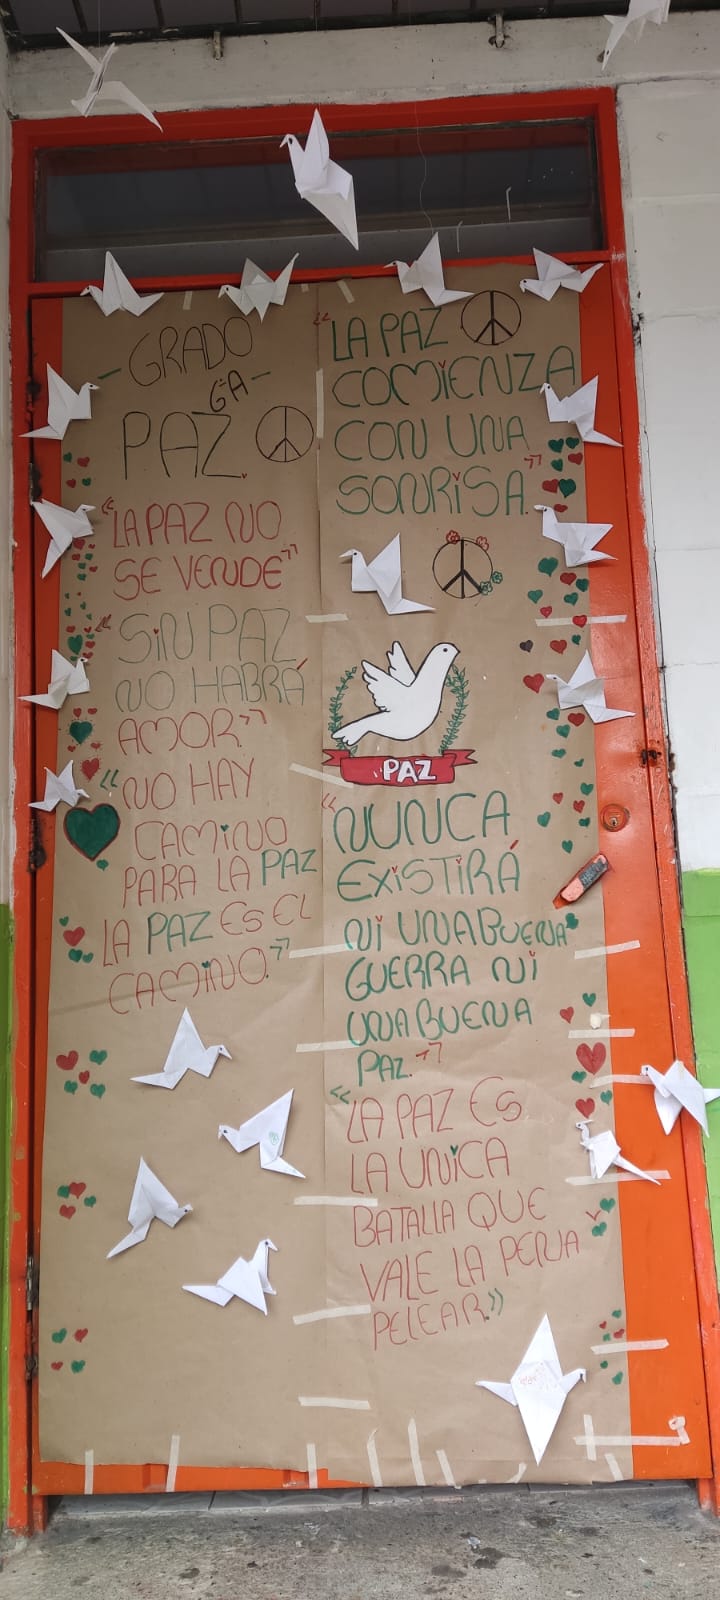 - GRADO
6-A -
PAZ.
"LA PAZ NO
SE VENDE"
"SIN PAZ
NO HABRÁ
AMOR."
"NO HAY
CAMINO
PARA LA PAZ
LA PAZ ES EL
CAMINO."
"LA PAZ
COMIENZA
CON UNA
SONRISA."
PAZ
"NUNCA
EXISTIRÁ
NI UNA BUENA
GUERRA NI
UNA BUENA
PAZ."
"LA PAZ ES
LA UNICA
BATALLA QUE
VALE LA PENA
PELEAR."